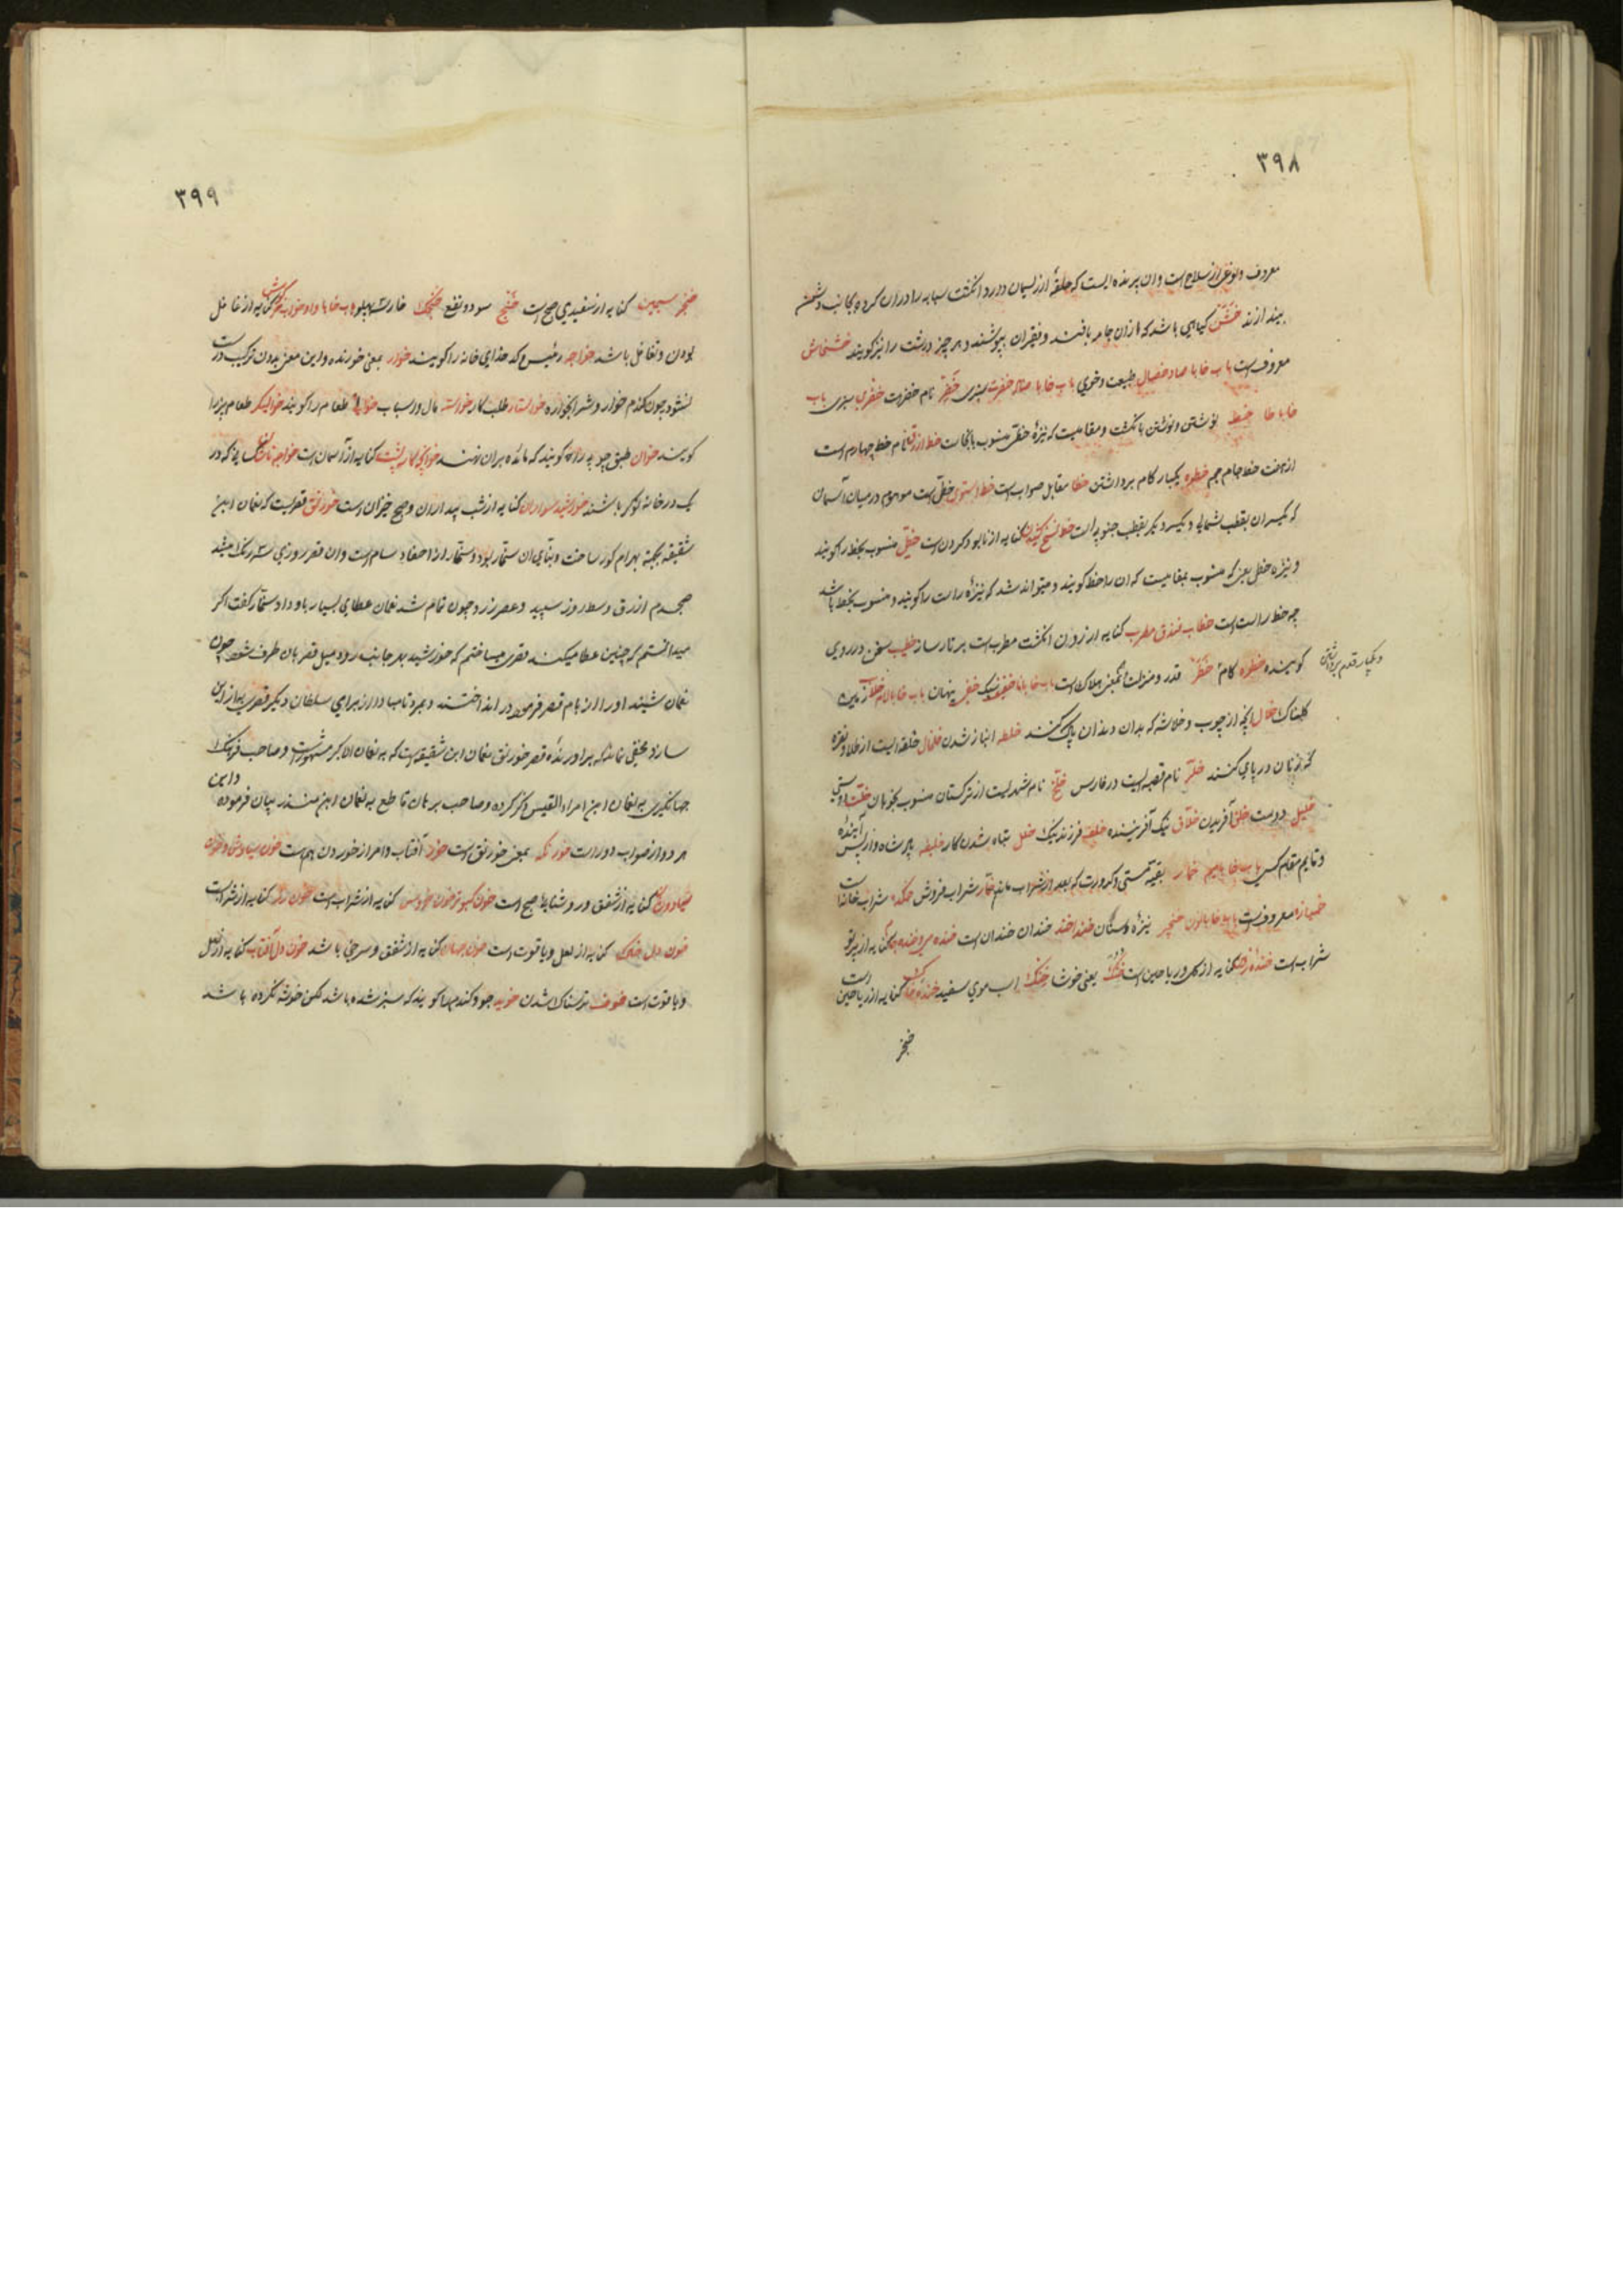 ۳۹۸
معروف و نوعی از سلاح است و آن پرنده ایست که حلقهٔ از ریسمان دارد انگشت سبابه را در آن کرده بجانب دشمن
بیندازند خشن گیاهی باشد که از آن جامه بافند و فقیران بپوشند و هر چیز درشت را نیز گویند خشخاش
معروف است باب خا با صاد خصال طبیعت و خوی باب خا با ضاد خضرت سبزی خضر نام حضرت خضری سبزی باب
خا با طا خط نوشتن و نوشتن با انگشت و مقامیست که نیزهٔ خطی منسوب بآنجاست خط ازرق نام خط چهارم است
از هفت خط جام جم خطوه یکبار گام برداشتن خطا مقابل صواب است خط استوی خطی است موهوم در میان آسمان
که یکسر آن بقطب شمالی و یکسر دیگر بقطب جنوبی است خط نسخ کشیدن کنایه از نابود کردن است خطی منسوب بخط را گویند
و نیزه خطی یعنی که منسوب بمقامیست که آن را خط گویند و میتواند شد که نیزهٔ راست را گویند و منسوب بخط باشد
چه خط راست است خطاب فندق مطرب کنایه از زدن انگشت مطرب است بر تار ساز خطیب سخن در روی
گوینده خطوه گام خطر قدر و منزلت و بمعنی هلاکت است باب خا با فا خفیف سبک خفی پنهان باب خا با لام خلاب زمین
و یکبار قدم برداشتن
گلناک خلال آنچه از چوب و خلاشه که بدان دندان پاک کنند خلخال حلقه ایست از طلا و نقره
که زنان در پای کنند خلر نام قصبه ایست در فارس خلخ نام شهریست از ترکستان منسوب بخوبان خلت دوستی
خلیل دوست خلق آفریدن خلاق نیک آفریننده خلف فرزند نیک خلل تباه شدن کار خلیفه پادشاه و از پس آینده
و قایم مقام کسی باب خا با میم خمار بقیه مستی و کدورت که بعد از شراب ماند خمار شراب فروش خمکده شراب خانه
خمیازه معروف است باب خا با نون خنجر نیزه خنداخند خندان خندان است
شراب است کنایه از گل و ریاحین است خنک یعنی خوشا خنگ اسب موی سفید کنایه از ریاحین است
خنجر
۳۹۹
خنجر سیمین کنایه از سفیدی صبح است خنج سود و نفع خنجک خار سه پهلو باب خا با واو خواب خرگوش کنایه از غافل
بودن و تغافل باشد خواجه رئیس و کدخدای خانه را گویند خوار بمعنی خورنده و این معنی بدون ترکیب درست
نشود چون گندم خوار و شرابخواره خواستار طلب کار خواسته مال و اسباب طعام را گویند خوالیگر طعام پز را
گویند خوان طبق چوبی را گویند که مائده بر آن نهند کنایه از آسمان است
یک در خانه کوکر باشند خورشید سواران کنایه از شب بیداران و صبح خیزان است خورنق قصریست که نعمان ابن
شقیقه بجهة بهرام گور ساخت و بنای آن سنمار بود و سنمار از احفاد سام است و آن قصر روزی سه رنگ میشد
صبحدم ازرق و وسط روز سپید و عصر زرد چون تمام شد نعمان عطای بسیار باو داد سنمار گفت اگر
میدانستم که چنین عطا میکنند قصری میساختم که خورشید بهر جانب رود میل قصر بآن طرف شود چون
نعمان شنید او را از بام قصر فرمود در انداختند و بمرد تا مبادا از برای سلطان دیگر قصری بهتر از این
سازد مخفی نماند که برآورندهٔ قصر خورنق نعمان ابن شقیقه است که به نعمان اکبر مشهور است و صاحب فرهنگ
جهانگیری به نعمان ابن امراء القیس ذکر کرده و صاحب برهان قاطع به نعمان ابن منذر بیان فرموده و این
هر دو از صواب دور است خورنگه بمعنی خورنق است خور آفتاب و امر از خوردن هم است خون سیاوش و خون
سیاوشان کنایه از شفق و روشنایی صبح است خون کبوتر خون خروس کنایه از شراب است خون رز کنایه از شراب است
خون دل خاک کنایه از لعل و یاقوت است خون جهان کنایه از شفق و سرخی باشد خون دل آفتاب کنایه از لعل
و یاقوت است خوف ترسناک شدن خوید جو و گندمها گویند که سبز شده باشد لکن خوشه نکرده باشد